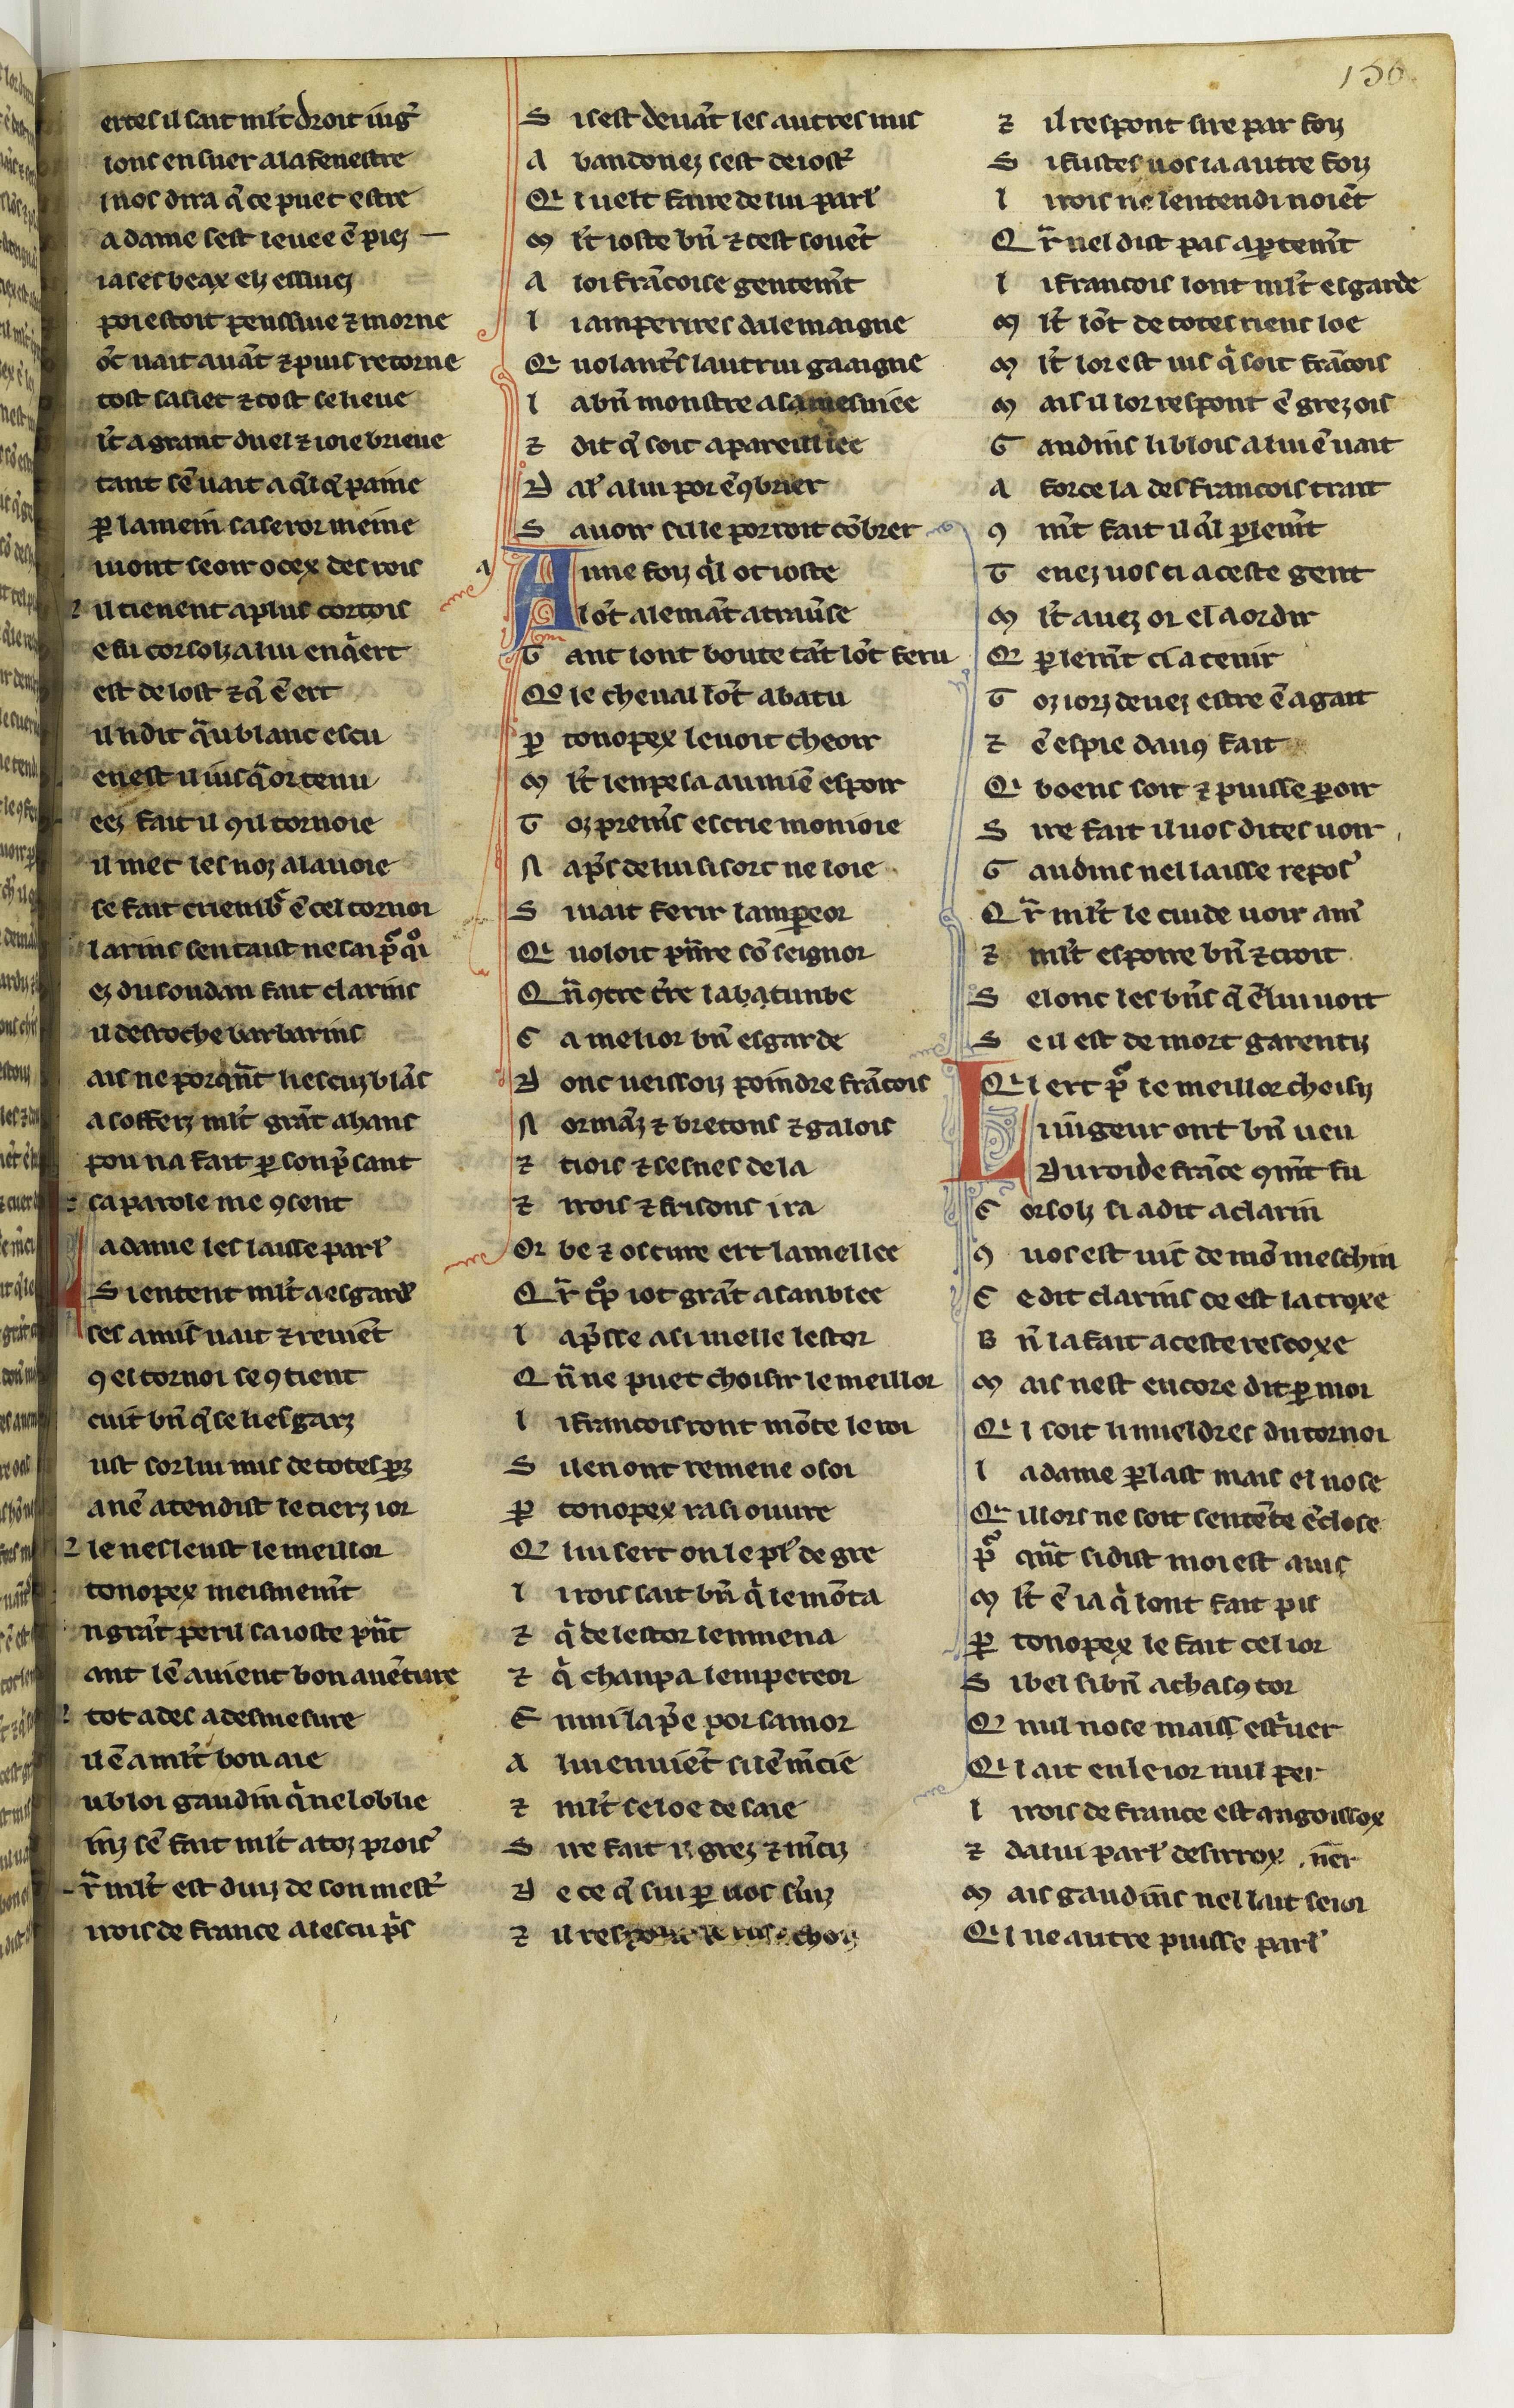 150
ertes il sait ml't droit iug'
ions en suer a la fenestre
l nos dira q̃ ce puet estre
a dame sest leuee ẽ piez
ia ses beax elz essuiez
poi estoit penssiue ⁊ morne
õt uait auãt ⁊ puis retorne
tost sasiet ⁊ tost se lieue
l't a grant duel ⁊ ioie brieue
tant sẽ uait a q̃l q̃ paine
ꝑ la mein sa seror meine
uuont seoir o cex des rois
il tienent a plus cortois
e fu corsolz a lui enq̃ert
est de lost ⁊ q̃ ẽ ert
il ndit q̃ u blanc escu
en est il iusq̃ or tenu
eez fait il ꝯ il tornoie
il met les noz a la uoie
se fait criembr̃ ẽ cel tornoi
larins sen taist ne sai pͣ qͦi
ez du soudan fait clarins
il desroche barbarins
ais ne porqñt li escuz blãs
a sofferz ml't grãt ahans
pou na fait ꝑ son p̃sant
sa parole me ꝯsent
a dame les laisse parl'
S i entent ml't a esgard'
ses amis uait ⁊ reuiẽt
ꝯ el tornoi se ꝯtient
cuit bñ q̃ se li esgarz
ust sor lui mis de totes ꝑz
anẽ atendist le tierz ior
le nesleust le meillor
tonopex meismemt̃
n grãt peril sa ioste pñt
ant lẽ auient bon auẽture
tot ades a desmesure
il ẽ a ml't bon aie
u bloi gaudin q̃ nel oblie
inz sẽ fait ml't a toz prois'
r̃ ml't est duiz de son mest'
i rois de france a lescu pͥs
S is est deuãt les autres mis
A bandonez sest de iost'
Qi uelt faire de lui parl'
M l't ioste bñ ⁊ cest souẽt
A loi frãcoise gentemt̃
L i amperires dalemaigne
Qi uolantrs̃ lautrui gaaigne
L a bñ monstre a sa mesniee
⁊ dit q̃ soit apareilliee
D al' a lui por ẽꝯbrier
S auoir sil le porroit cõbrer
A une foiz q̃l ot ioste
Lõt alemãt a trau̾se
T ant lont boute tãt lõt feru
Qe le cheual lõt abatu
P tonopex le uoit cheoir
M l't len pesa au miẽ espoir
T oz premrs̃ escrie monioie
N ap̃s de lui si sort ne loie
S i uait ferir lampeor
Qi uoloit pñre sõ seignor
Q ñ ꝯtre tr̃e labatunbe
C a melior bñ esgarde
D onc ueissoiz poindre frãcois
N ormãz ⁊ bretons ⁊ galois
⁊ tiois ⁊ sesnes de la
⁊ irois ⁊ frisons i ra
Or be ⁊ oscure ert la mellee
Q r̃ tͦp i ot grãt asanblee
L ap̃sse a si melle lestor
Q ñ ne puet choisir le meillor
L i francois ront mõte le roi
S il en ont remene o soi
P tonopex ra si ouure
Q lui sert on le pl' de gre
L i rois sait bñ q̃ le mõta
⁊ q̃ de lestor len mena
⁊ q̃ chaupa lempereor
E nmi la p̃e por samor
A lui en uiẽt si lẽ m̃cie
⁊ ml't se loe de saie
S ire fait il grez ⁊ m̃ciz
D e ce q̃ sui ꝑ uos s̃uiz
⁊ il respont
⁊ il respont sire par foiz
S i fustes uos ia autre foiz
L i rois ne lentendi noiẽt
Q r̃ nel dist pas apertemt̃
L i francois lont ml't esgarde
M l't lõt de totes riens loe
M l't lor est uis q̃ soit frãcois
M ais il lor respont ẽ grezois
G audins li blois a lui ẽ uait
A force la des francois trait
ꝯ m̃t fait il q̃l ꝑlemt̃
T enez uos ci a ceste gent
M l't auez or el a ordir
Q ꝑlemt̃ ci a tenir
T oz iorz deuez estre ẽ agait
⁊ ẽ espie dauꝯ fait
Qi boens soit ⁊ puisse ꝑoir
S ire fait il uos dites uoir
G audins nel laisse repos'
Q r̃ ml't le cuide uoir am'
⁊ ml't espoire bñ ⁊ croit
S elonc les bñs q̃ ẽ lui uoit
S e il est de mort garentiz
Qi ert pͣ le meillor choisiz
L i iugeur ont bñ ueu
Du roi de frãce ꝯmt̃ fu
C orsolz si a dit a clarin
ꝯ uos est uis de mõ meschin
C e dit clarins ce est la troxe
B ñ la fait a ceste rescoxe
M ais nest encore dit ꝑ moi
Qi soit li mieldres du tornoi
L a dame ꝑlast mais el nose
Qi llors ne soit sentẽte ẽclose
pͣ qñt si dist moi est auis
M l't ẽ ia q̃ lont fait pis
P tonopex le fait cel ior
S i bel si bñ a chasꝯ tor
Q nul nose maiss estr̾uer
Qi ait eu le ior nul per
L i rois de france est angoissox
⁊ da lui parl' desirrox
ñer
M ais gaudins nel lait seior
Qi ne autre puisse parl'